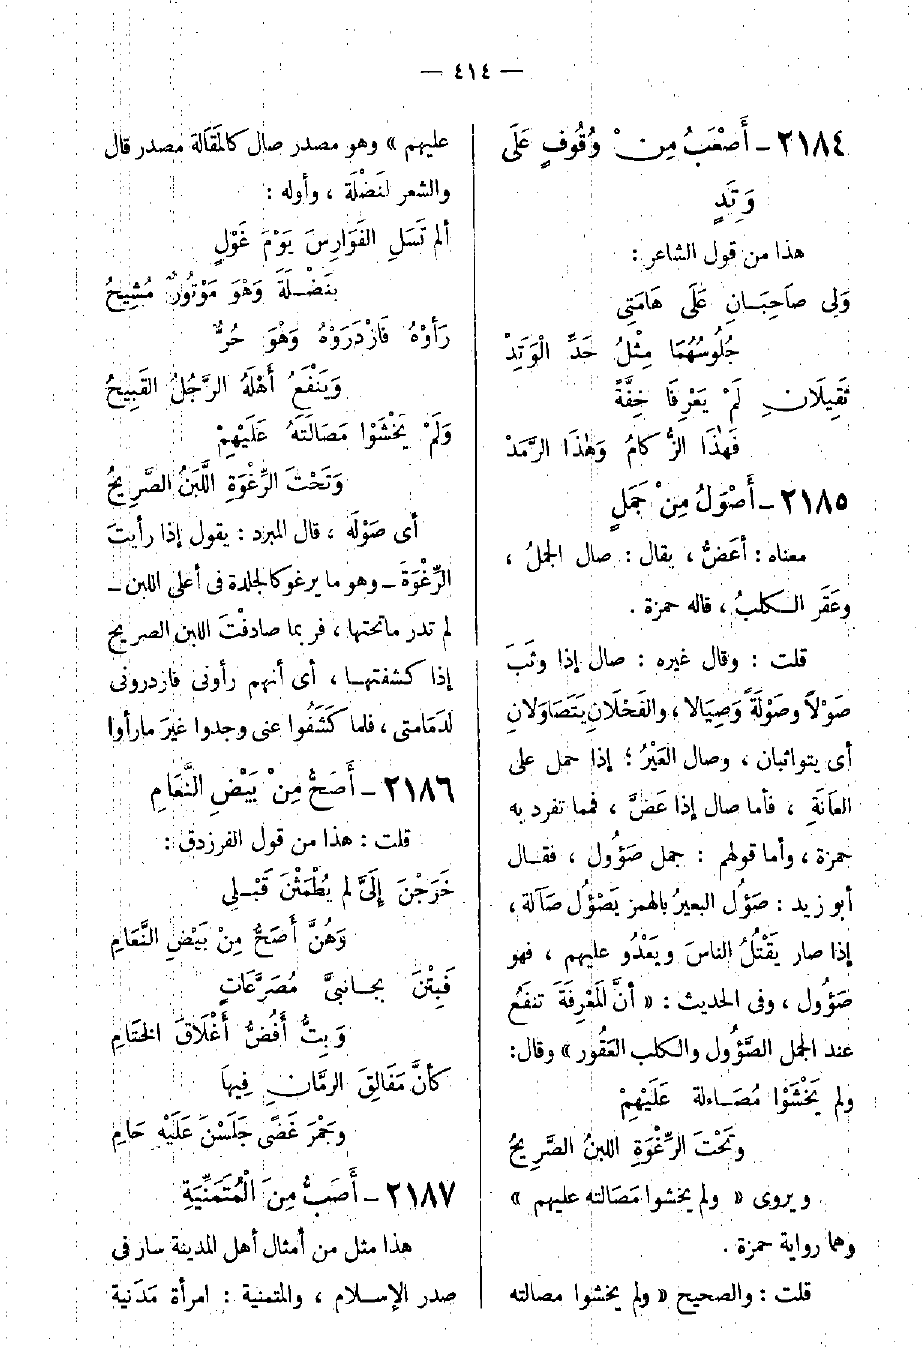 — ٤١٤ —
٢١٨٤ - أَصْعَبُ مِنْ وُقُوفٍ عَلَى
وَتَدٍ
هذا من قول الشاعر :
وَلِى صَاحِبَانِ عَلَى هَامَتِى
جُلُوسُهُمَا مِثْلُ حَدِّ الْوَتَدْ
ثَقِيلَانِ لَمْ يَعْرِفَا خِفَّةً
فَهٰذَا الزُّكَامُ وَهٰذَا الرَّمَدْ
٢١٨٥ - أَصْوَلُ مِنْ جَمَلٍ
معناه : أعَضُّ ، يقال : صال الجملُ ،
وعَقَر الكلبُ ، قاله حمزة .
قلت : وقال غيره : صال إذا وثَبَ
صَوْلاً وصَوْلَةً وَصِيَالا ، والفَحْلَانِ يَتَصَاوَلانِ
أى يتواثبان ، وصال العَيْرُ ؛ إذا حمل على
العَانَةِ ، فأما صال إذا عَضَّ ، فمما تفرد به
حمزة ، وأما قولهم : جمل صَؤُول ، فقال
أبو زيد : صَؤُلَ البعيرُ بالهمز يَصْؤُل صَآلة ،
إذا صار يَقْتُلُ الناسَ ويَعْدُو عليهم ، فهو
صَؤُول ، وفى الحديث : « أنَّ الْمَعْرِفَةَ تنفَعُ
عند الجمل الصَّؤُول والكلب العَقُور » وقال:
ولم يَخْشَوْا مُصَاءلة عَلَيْهِمْ
وتَحْتَ الرِّغْوَةِ اللبنُ الصَّرِيحُ
ويروى « ولم يخشوا مَصَالته عليهم »
وهما رواية حمزة .
قلت : والصحيح « ولم يخشوا مصالته
عليهم » وهو مصدر صال كالمَقَالة مصدر قال
والشعر لنَضْلَة ، وأوله :
ألم تَسَلِ الفَوَارِسَ يَوْمَ غَوْلٍ
بِنَضْلَةَ وَهْوَ مَوْتُورٌ مُشِيحُ
رَأَوْهُ فَازْدَرَوْهُ وَهْوَ حُرٌّ
وَيَنْفَعُ أَهْلَهُ الرَّجُلُ القَبِيحُ
وَلَمْ يَخْشَوْا مَصَالَتَهُ عَلَيْهِمْ
وَتَحْتَ الرِّغْوَةِ اللَّبَنُ الصَّرِيحُ
أى صَوْلَه ، قال المبرد : يقول إذا رأيتَ
الرِّغْوَةَ - وهو ما يرغو كالجلدة فى أعلى اللبن -
لم تدر ماتحتها ، فربما صادفْتَ اللبن الصريح
إذا كشفتها ، أى أنهم رأونى فازدرونى
لدَمَامتى ، فلما كَشَفُوا عنى وجدوا غيرَ مارأوا
٢١٨٦ - أَصَحُّ مِنْ بَيْضِ النَّعَامِ
قلت : هذا من قول الفرزدق :
خَرَجْنَ إِلَىَّ لم يُطْمَثْنَ قَبْلِى
وَهُنَّ أَصَحُّ مِنْ بَيْضِ النَّعَامِ
فَبِتْنَ بجانبىَّ مُصَرَّعَاتٍ
وَبِتُّ أَفُضُّ أَغْلَاقَ الخِتَامِ
كأنَّ مَفَالِقَ الرمَّانِ فِيهَا
وجَمْرَ غَضًى جَلَسْنَ عَلَيْهِ حَامِ
٢١٨٧ - أَصَبُّ مِنَ الْمُتَمَنِّيَةِ
هذا مثل من أمثال أهل المدينة سار فى
صدر الإسلام ، والمتمنية : امرأة مَدَنية